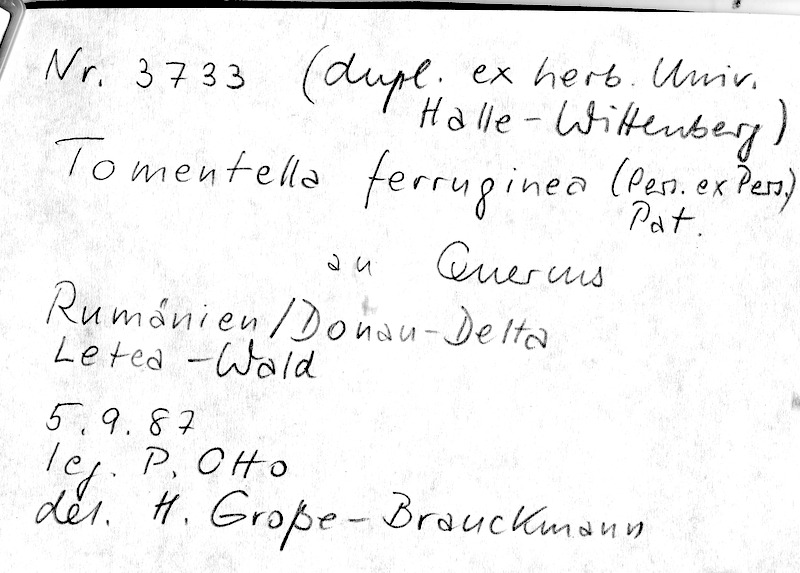 Nr. 3733 (dupl. ex herb. Univ.
Halle-Wittenberg)
Tomentella ferruginea (Pers. ex Pers.)
Pat.
an Quercus
Rumänien/Donau-Delta
Letea-Wald
5.9.87
leg. P. Otto
det. H. Große-Brauckmann